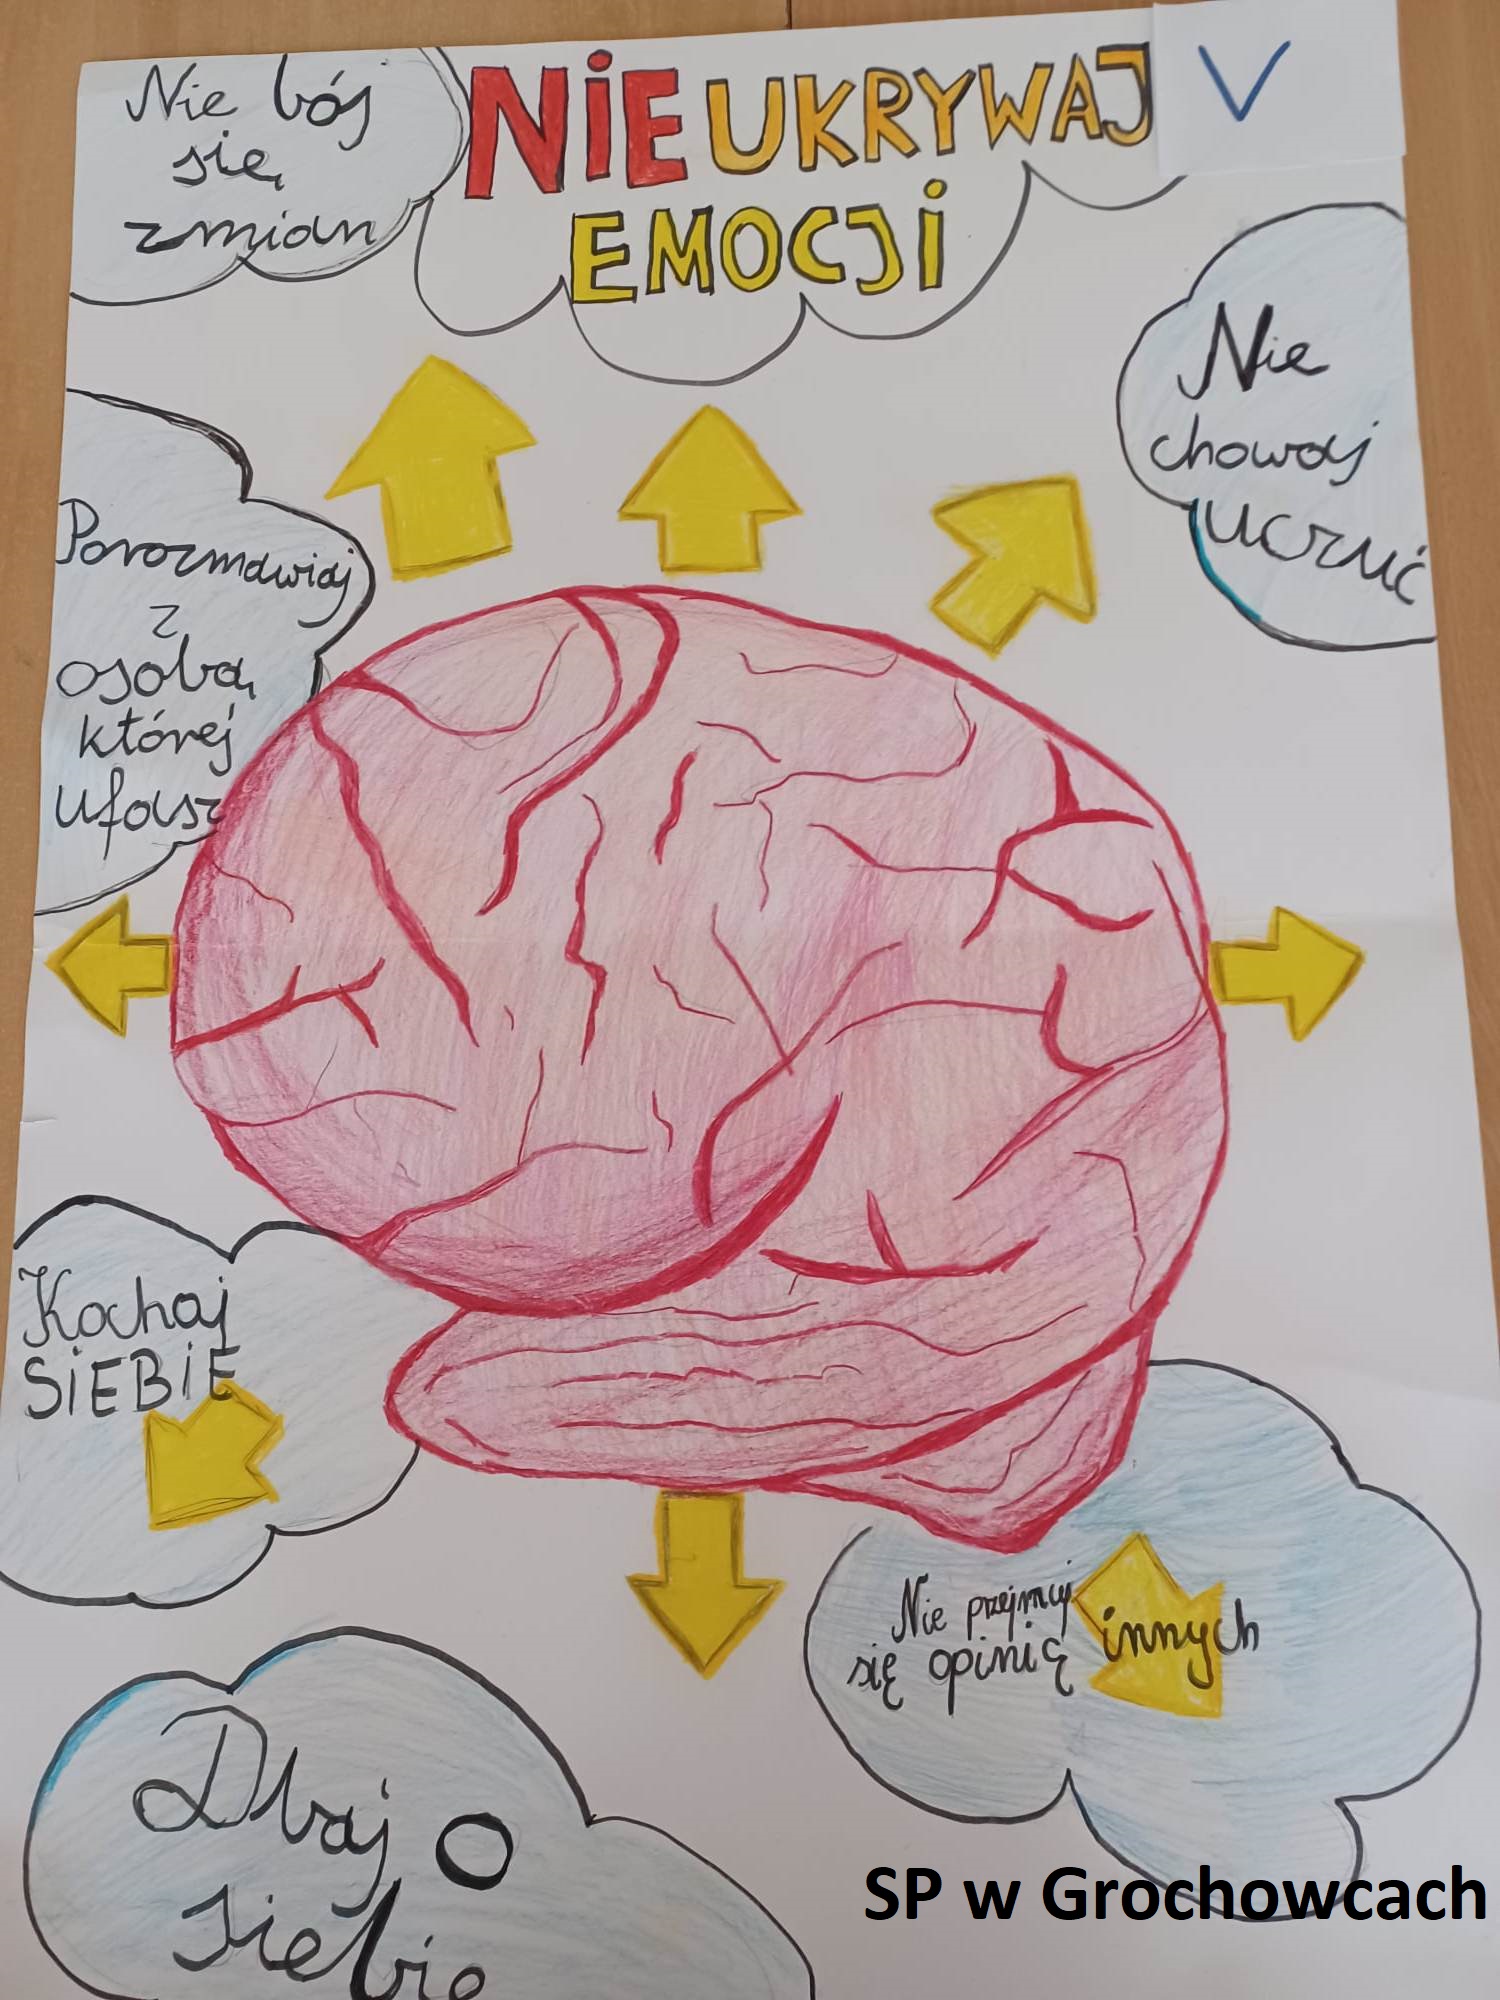 Nie bój
się
zmian
NiE UKRYWAJ
EMOCJi
V
Nie
chowaj
uczuć
Porozmawiaj
z
osobą
której
ufasz
Kochaj
SiEBiE
Nie przejmuj
się opinią innych
Dbaj o
siebie
SP w Grochowcach